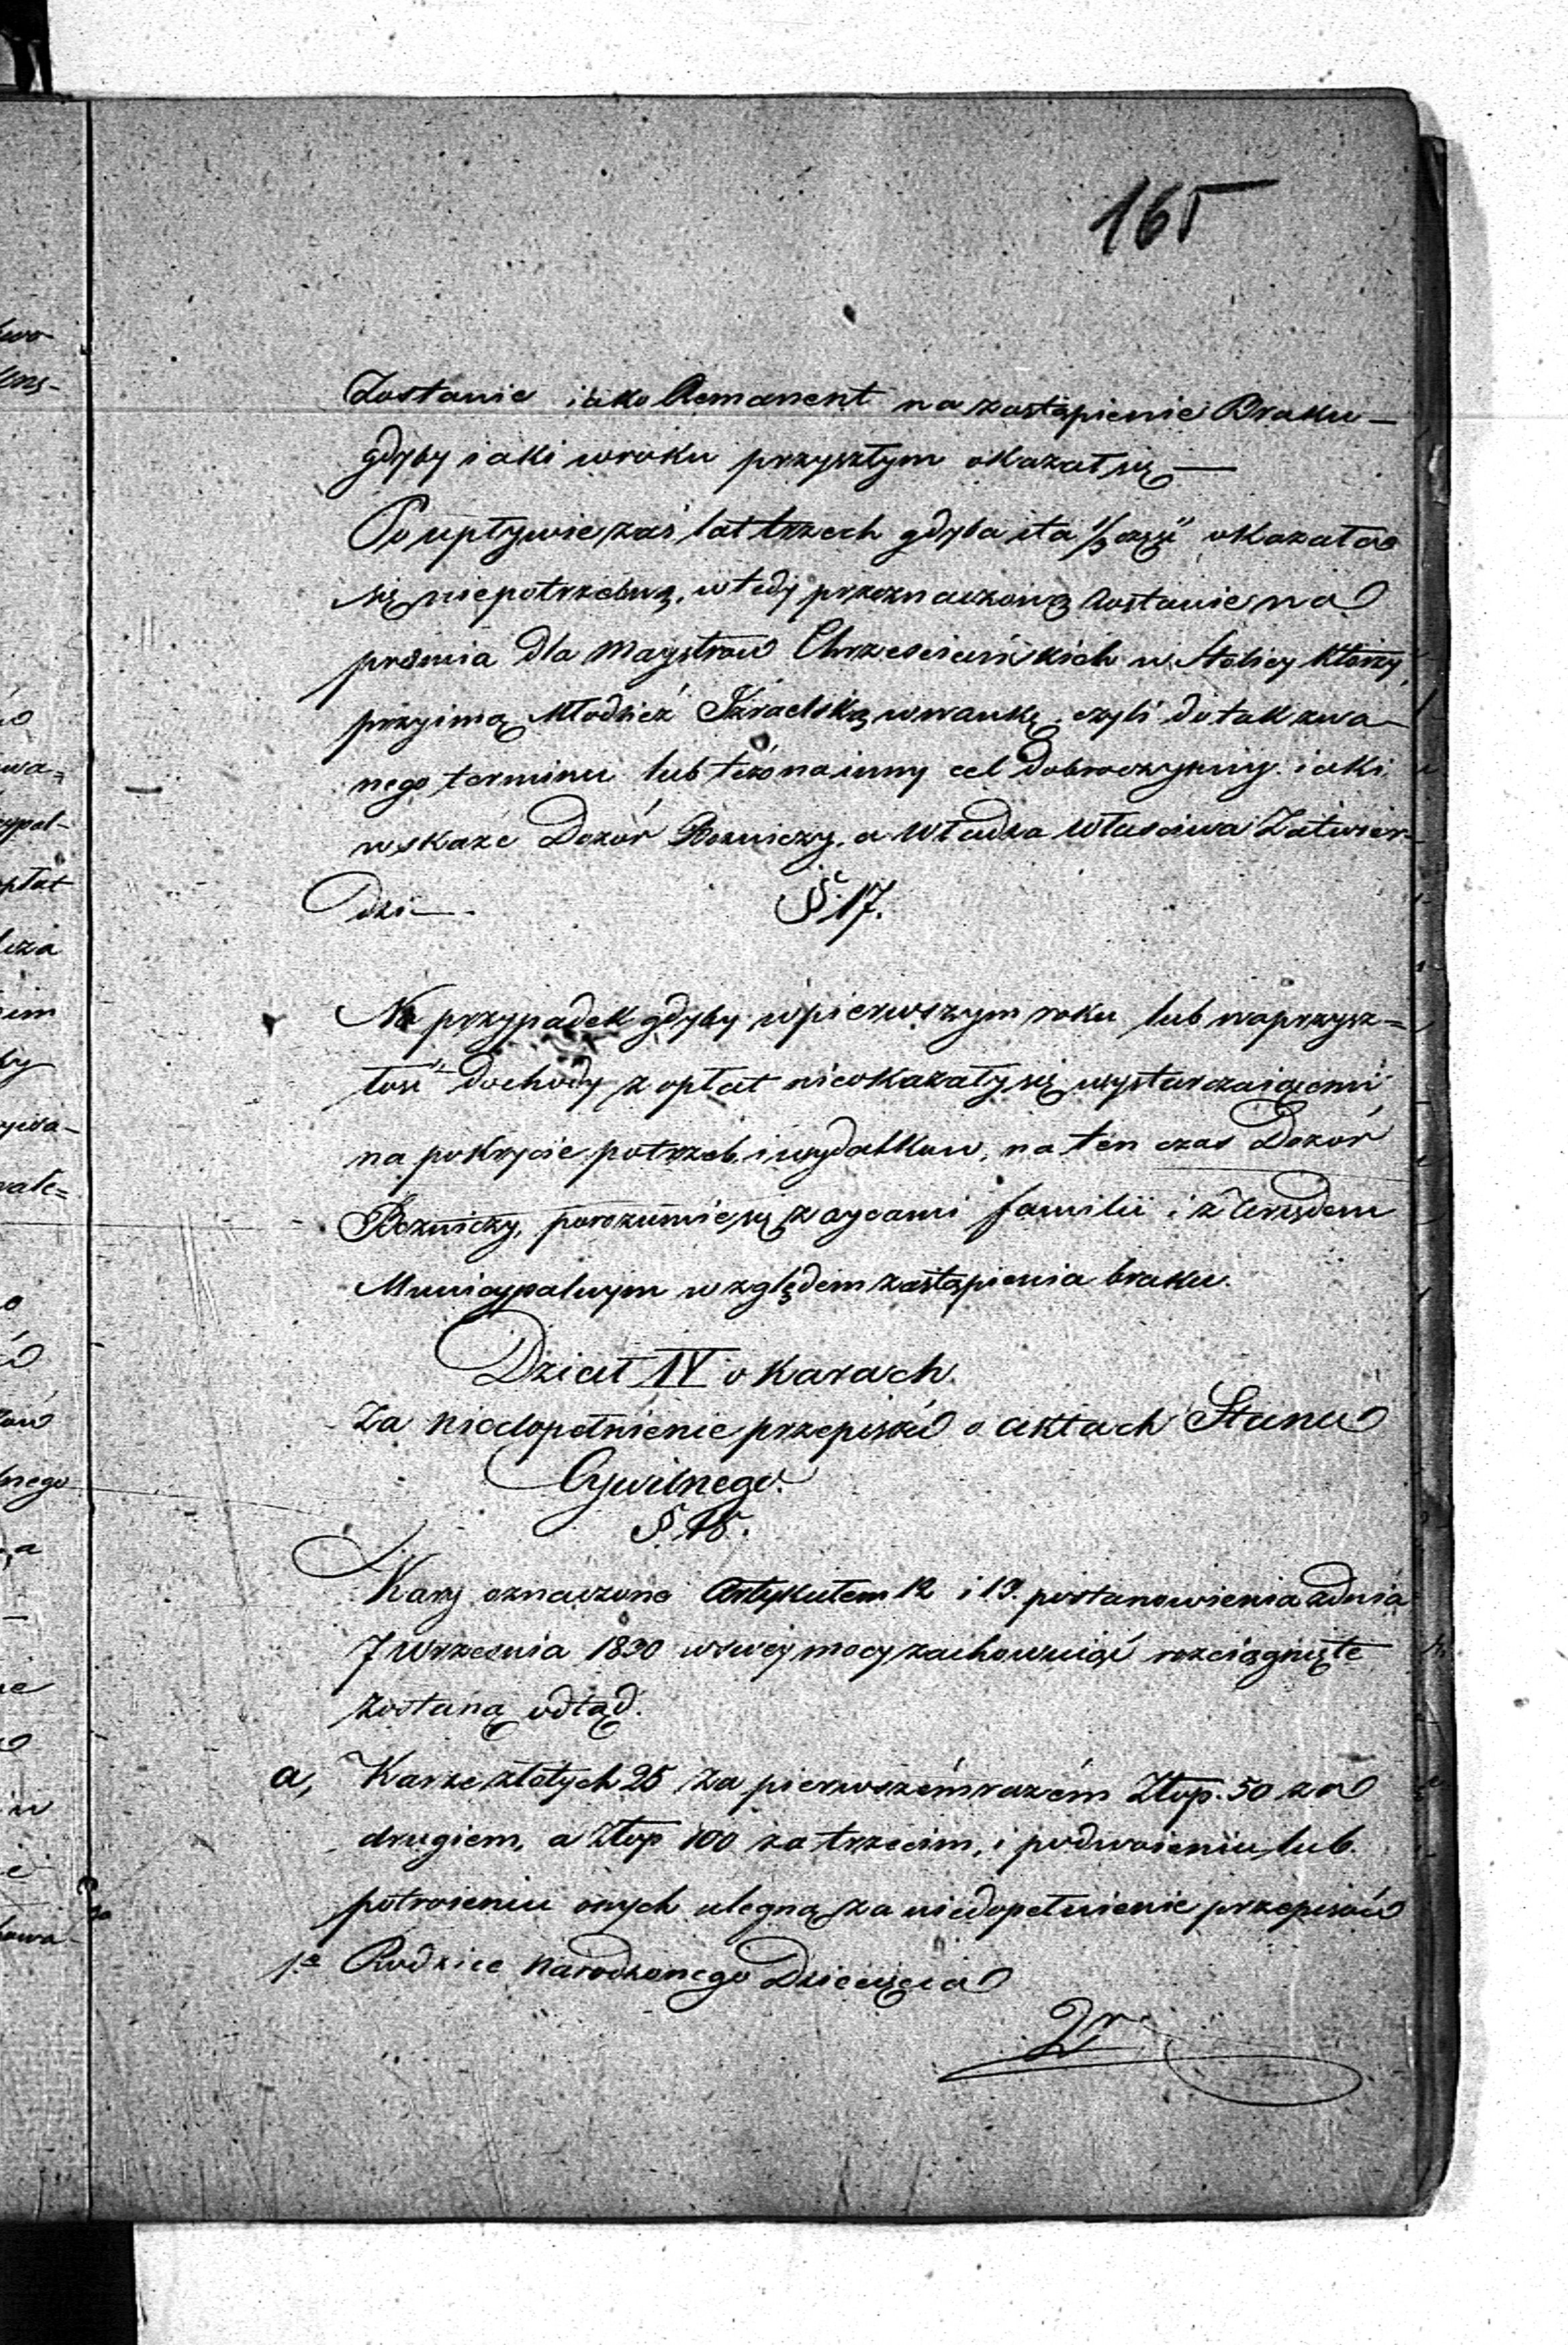 165
Zostanie iako Remanent na zastąpienie Braku—
gdyby iaki w roku przyszłym okazał się—
Po upływie zaś lat trzech gdyba ta 1/3 część okazała
się niepotrzebną, wtedy przeznaczoną zostanie na
premia dla Maystrów Chrześciańskich w Stolicy którzy
przyimą Młodzież Izraelską w naukę, czyli do tak zwa-
nego terminu lub też na inny cel dobroczynny iaki
wskaże Dozór Bożniczy, a Władza Właściwa Zatwier-
dzi—.
§ 17.
Na przypadek gdyby w pierwszym roku lub w przysz=
łości dochody z opłat nieokazały się wystarczaiącemi
na pokrycie potrzeb i wydatków, na ten czas Dozór
Bożniczy, porozumie się z oycami familii i z Urzędem
Municypalnym względem zastąpienia braku.
Dział IV o karach.
Za niedopełnienie przepisów o aktach Stanu
Cywilnego.
§ 18.
Kary oznaczone Artykułem 12 i 13. postanowienia z dnia
7 Września 1830 w swej mocy zachowuiąć rozciągnięte
zostaną odtąd.
a, Karze złotych 25 za pierwszém razém Złop. 50 za
drugiem, a Złop 100 za trzecim, i podwoieniu lub
potroieniu onych ulegną za niedopełnienie przepisów
1e Rodzice narodzonego Dziecięcia
2r